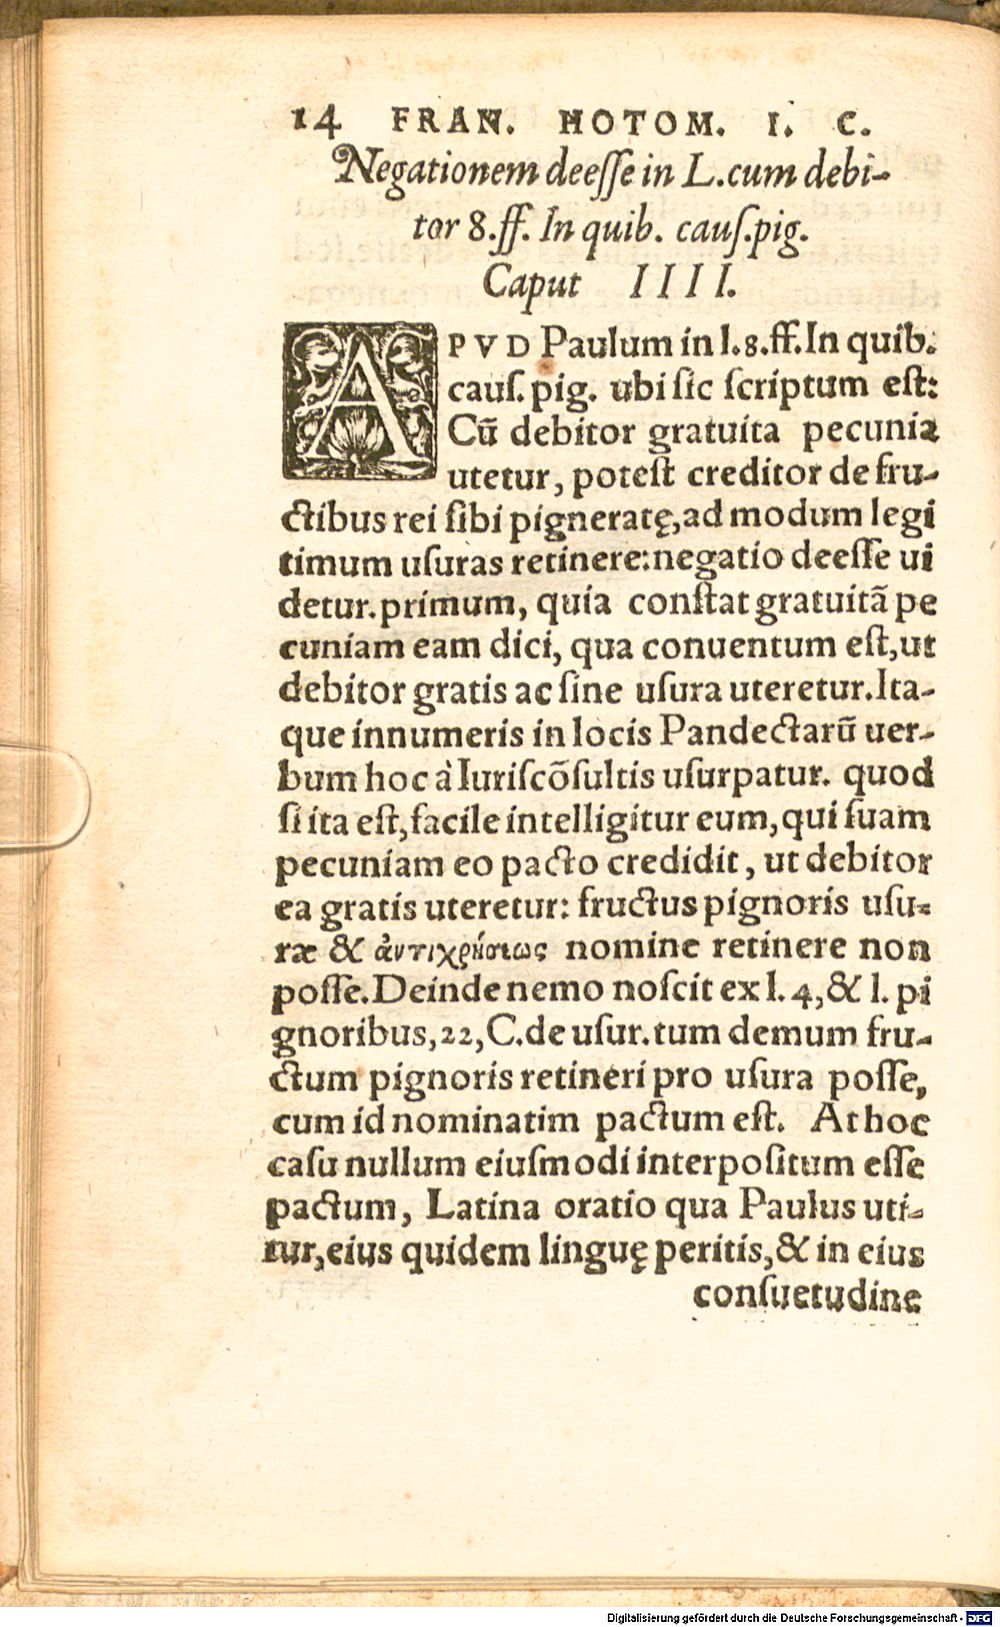 14 FRAN. HOTOM. I. C.
Negationem deeſſe in L.cum debi-
tor 8.ff. In quib. cauſ.pig.
Caput IIII.
APVD Paulum in l.8.ff.In quib.
cauſ.pig. ubi ſic ſcriptum eſt:
Cũ debitor gratuita pecunia
utetur, poteſt creditor de fru-
ctibus rei ſibi pigneratę,ad modum legi
timum uſuras retinere:negatio deeſſe ui
detur.primum, quia conſtat gratuitã pe
cuniam eam dici, qua conuentum eſt,ut
debitor gratis ac ſine uſura uteretur.Ita-
que innumeris in locis Pandectarũ uer-
bum hoc à Iuriſcõſultis uſurpatur. quod
ſi ita eſt,facile intelligitur eum,qui ſuam
pecuniam eo pacto credidit, ut debitor
ea gratis uteretur: fructus pignoris uſu-
ræ & ἀντιχρήσεως nomine retinere non
poſſe.Deinde nemo noſcit ex l. 4,& l. pi
gnoribus,22,C.de uſur.tum demum fru-
ctum pignoris retineri pro uſura poſſe,
cum id nominatim pactum eſt. At hoc
caſu nullum eiuſmodi interpoſitum eſſe
pactum, Latina oratio qua Paulus uti-
tur,eius quidem linguę peritis,& in eius
conſuetudine
Digitalisierung gefördert durch die Deutsche Forschungsgemeinschaft - DFG